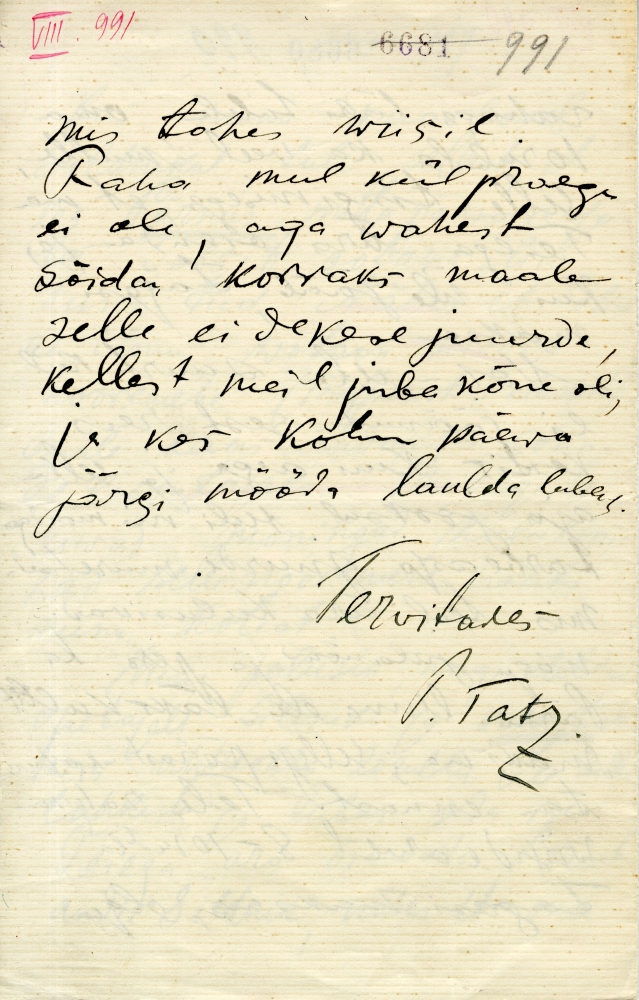 VIII. 991
6681 991
mis tahes wiisil.
Raha mul küll praegu
ei ole, aga wahest
sõidan korraks maale
selle eidekese juurde,
kellest meil juba kõne oli,
ja kes kolm päewa
järgi mööda laulda lubas.
Tervitades
P. Tatz.